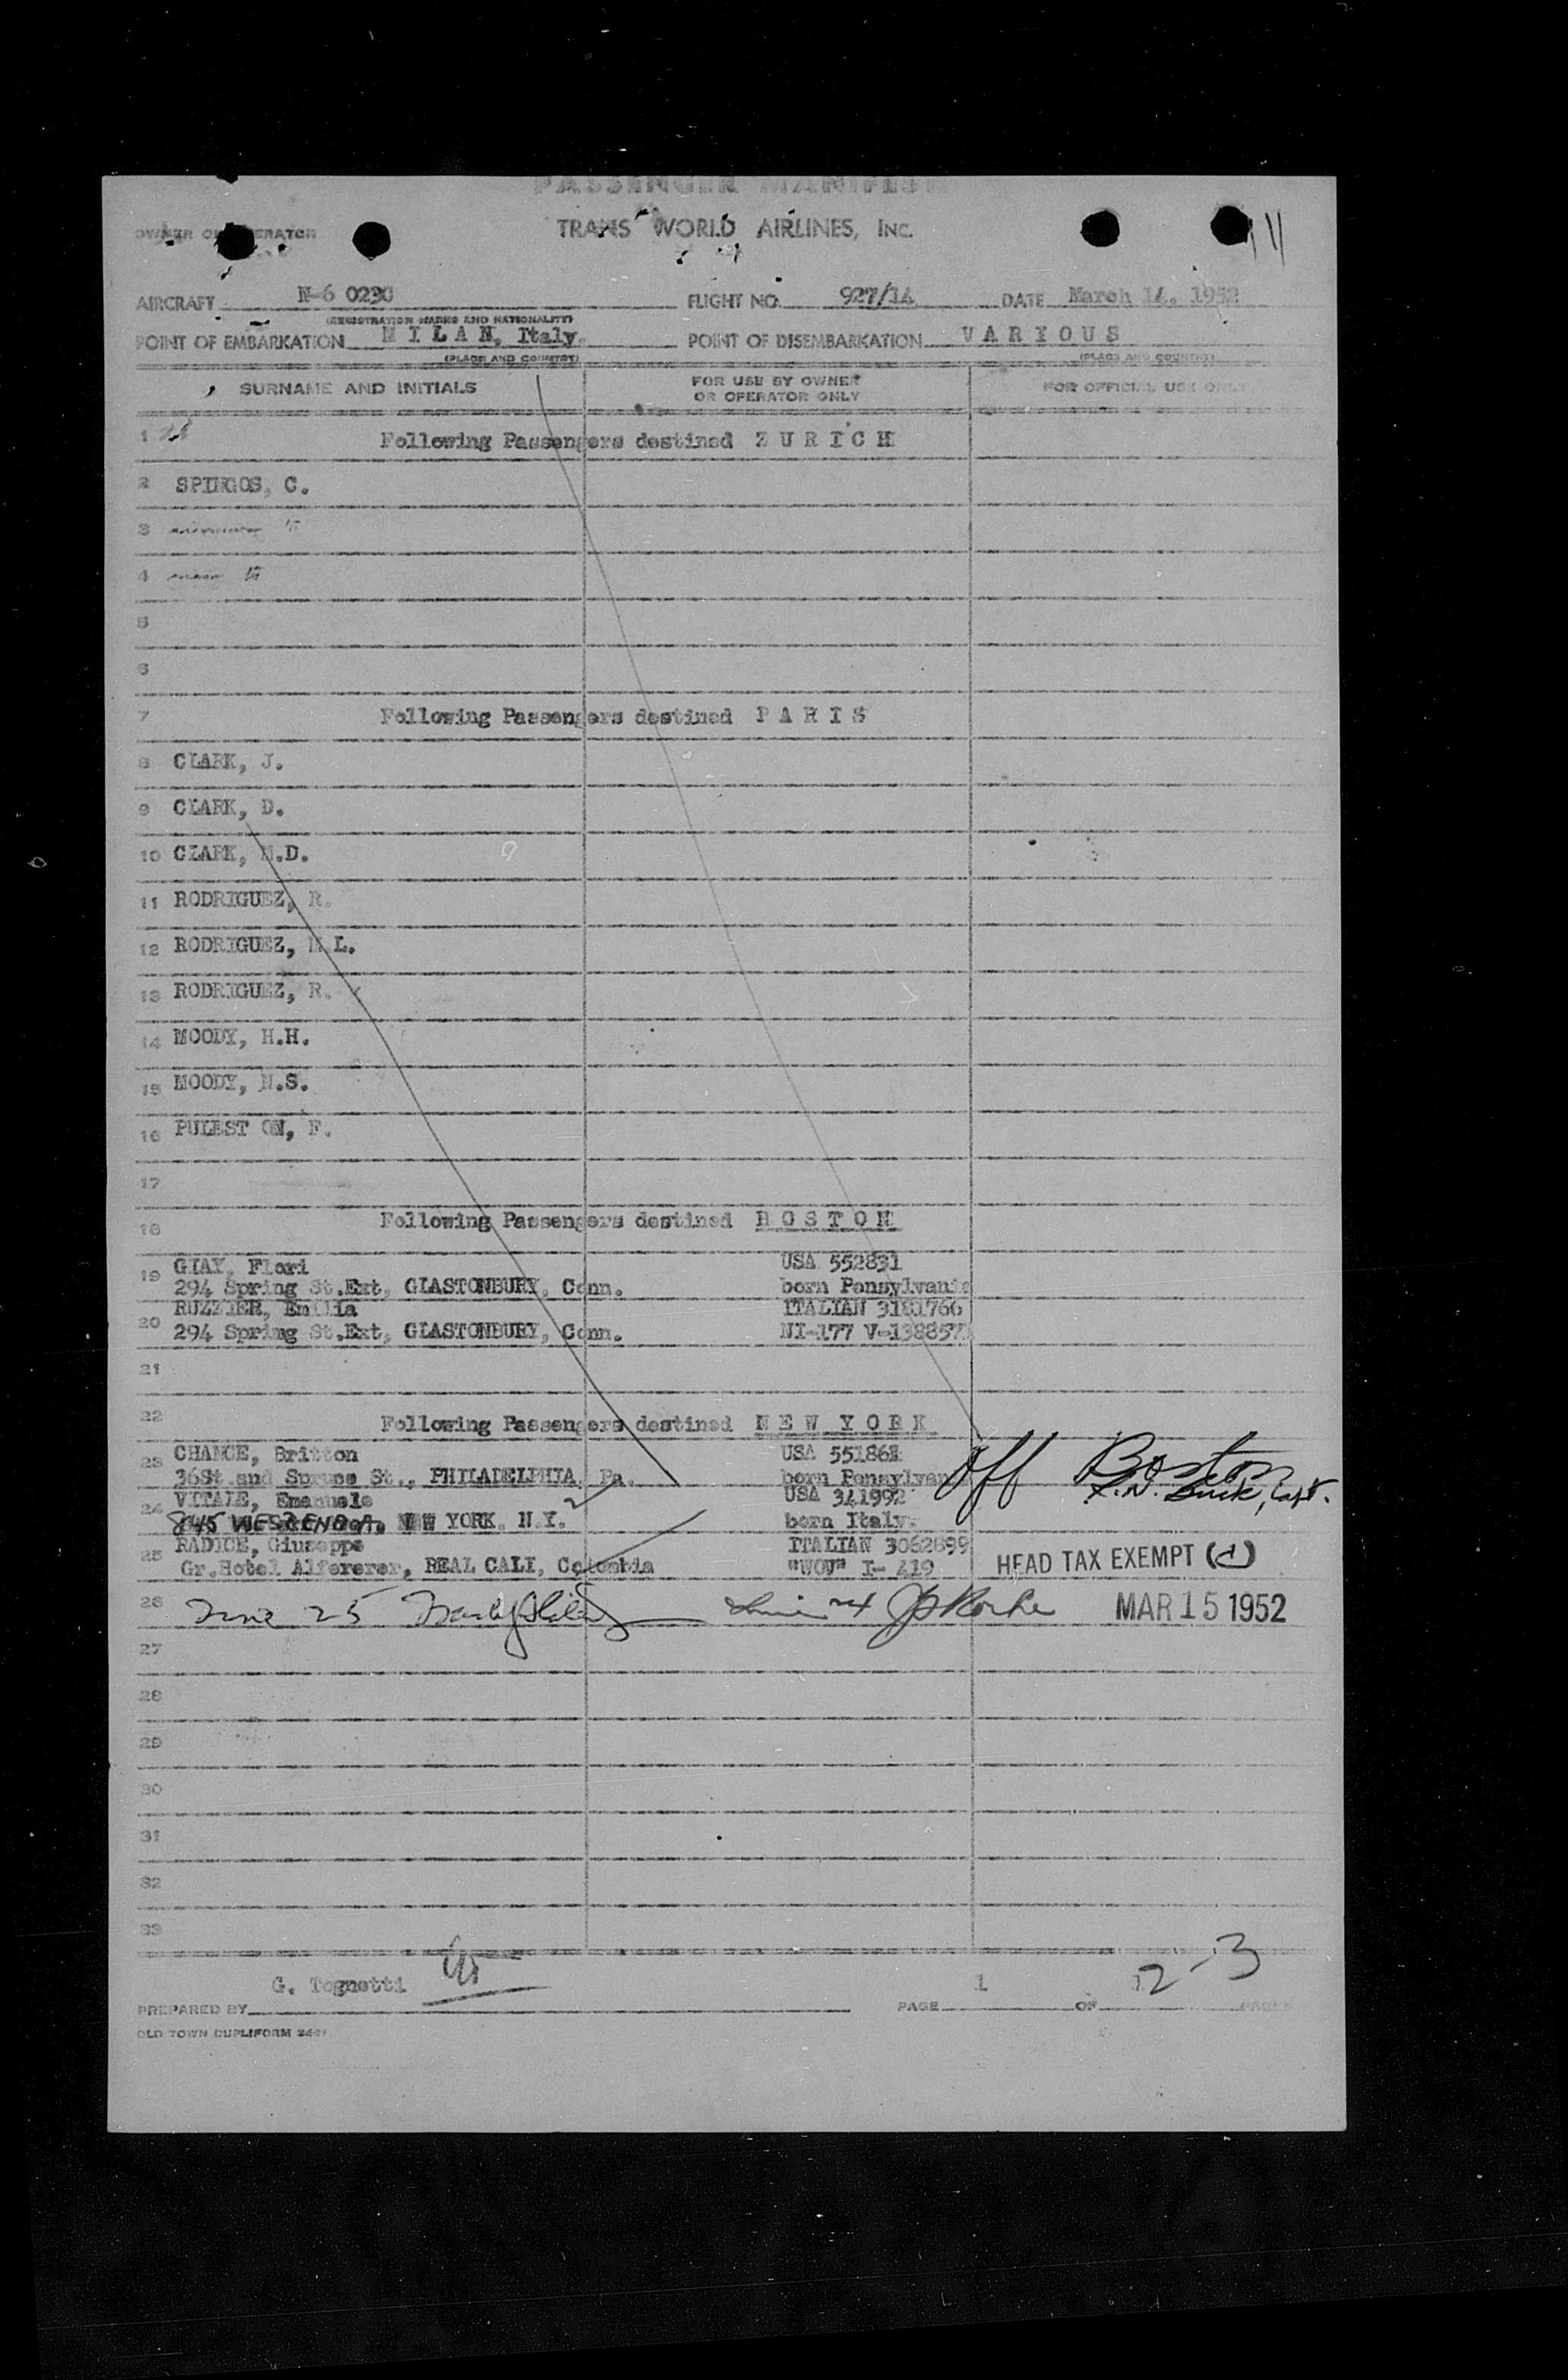 PASSENGER MANIFEST
OWNER OR OPERATOR
TRANS WORLD AIRLINES, INC.
AIRCRAFT N-6 023C FLIGHT NO. 927/14 DATE March 14, 1952
(REGISTRATION MARKS AND NATIONALITY)
POINT OF EMBARKATION M I L A N, Italy. POINT OF DISEMBARKATION V A R I O U S
(PLACE AND COUNTRY) (PLACE AND COUNTRY)
SURNAME AND INITIALS FOR USE BY OWNER OR OPERATOR ONLY FOR OFFICIAL USE ONLY
1 Following Passengers destined Z U R I C H
2 SPINGOS, C.
3
4
5
6
7 Following Passengers destined P A R I S
8 CLARK, J.
9 CLARK, D.
10 CLARK, M.D.
11 RODRIGUEZ, R.
12 RODRIGUEZ, M.L.
13 RODRIGUEZ, R.
14 MOODY, H.H.
15 MOODY, N.S.
16 PULEST ON, F.
17
18 Following Passengers destined B O S T O N
19 GIAY, Flori USA 552831
294 Spring St.Ext, GLASTONBURY, Conn. born Pensylvania
20 RUZZIER, Emilia ITALIAN 3181766
294 Spring St.Ext, GLASTONBURY, Conn. NI-177 V-138857
21
22 Following Passengers destined N E W Y O R K
23 CHANCE, Britton USA 551861 Off Boston
36St.and Spruce St., PHILADELPHIA, Pa. born Pensylvan
24 VITALE, Emanuele USA 341992 Buck, Capt.
845 WEST END A. NEW YORK, N.Y. born Italy.
25 RADICE, Giuseppe ITALIAN 3062699
Gr.Hotel Alfererer, REAL CALI, Colombia "WOU" I- 419 HEAD TAX EXEMPT (d)
26 25 MAR 15 1952
27
28
29
30
31
32
33
G. Tognetti
PREPARED BY PAGE 1 OF 2-3 PAGES
OLD TOWN DUPLIFORM